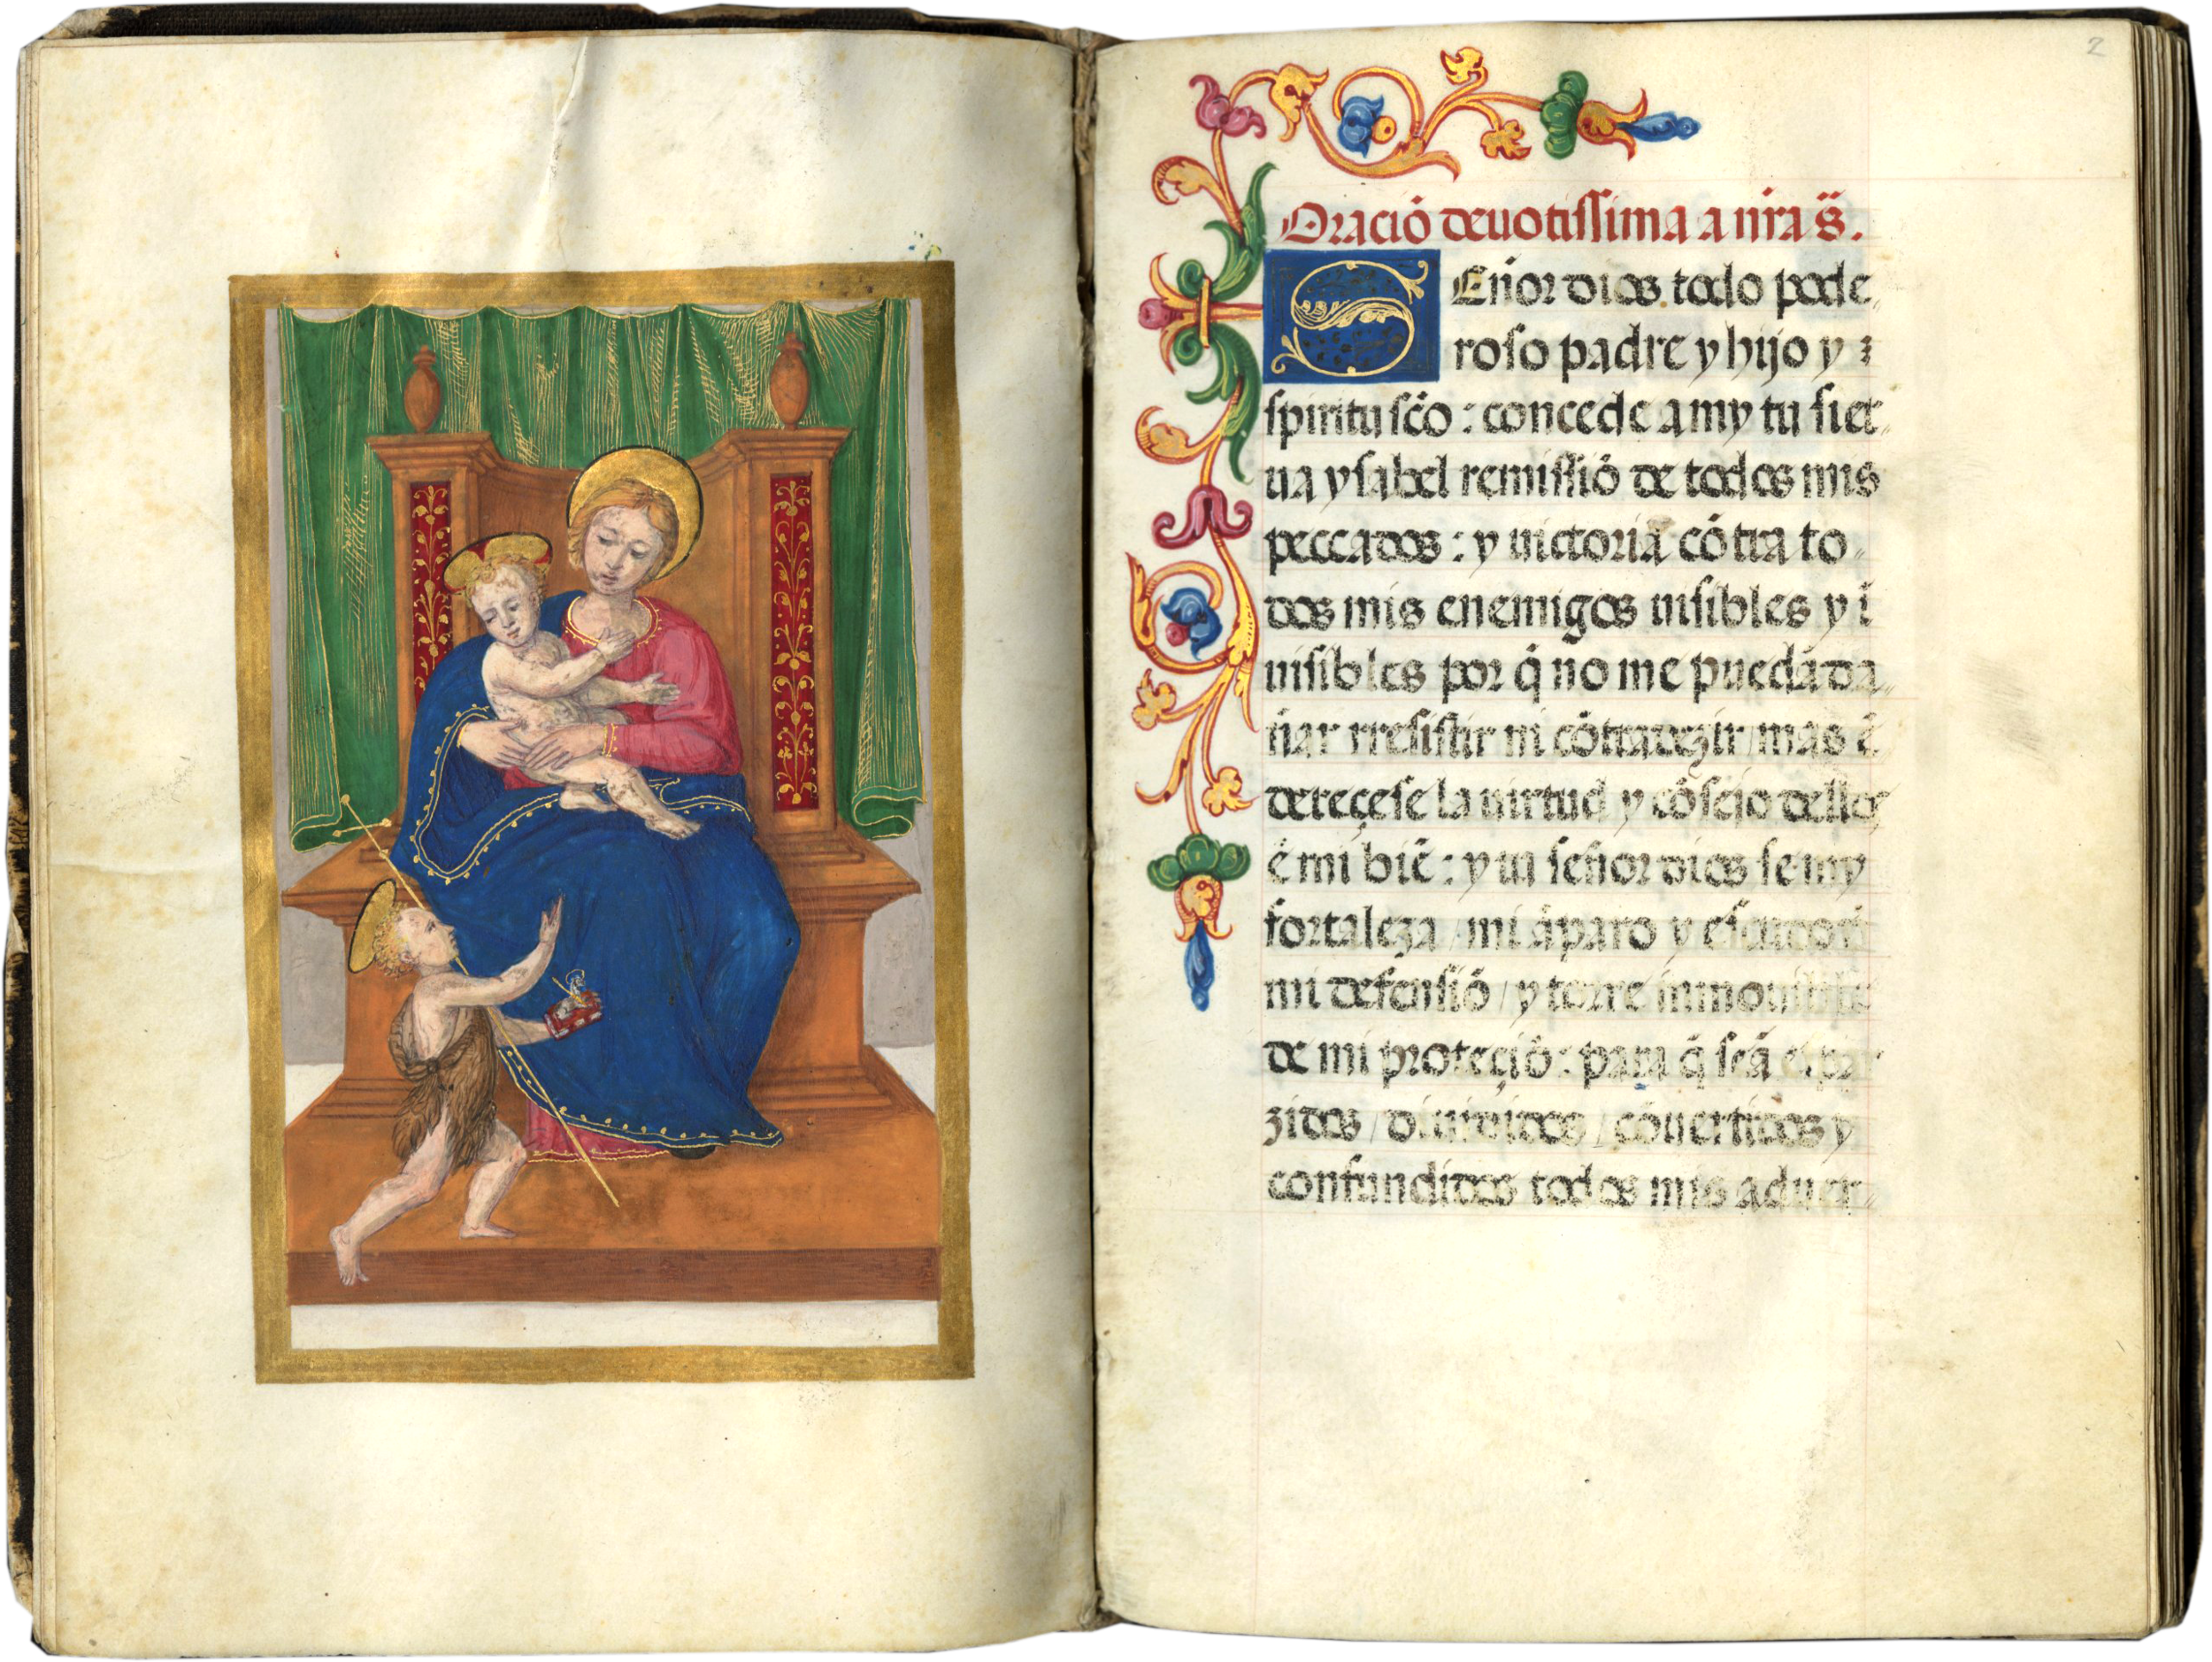 2
Oració deuotissima a nr̃a s̃.
SEñor dios todo pode
roso padre y hijo y e
spiritu sc̃o : concede a my tu sier
ua ysabel remissiõ de todos mis
peccados : y uictoria cõtra to
dos mis enemigos uisibles y ĩ
uisibles por q̃ no me puedã da
ñar rresistir ni cõtradezir / mas ẽ
dereçese la uirtud y cõsejo dellos
ẽ mi biẽ : y tu señor dios se my
fortaleza / mi ãparo y
mi defensiõ / y torre
de mi proteçiõ : para q̃ seã
zidos / diuididos / cõuertidos y
confundidos todos mis aduer